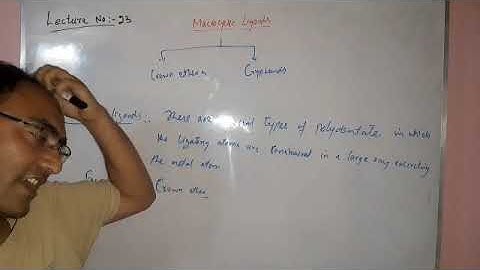 Lecture No:- 23
Macrocyclic Ligands
Crown ethers Cryptands
ligands:- These are special types of polydentates in which
the ligating atoms are constrained in a large ring encircling
the metal atom
Crown ether